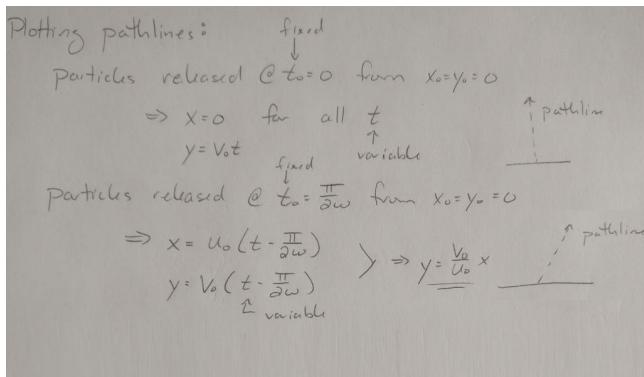 Plotting pathlines:
fixed
↓
particles released @ t₀=0 from x₀=y₀=0
⇒ x=0 for all t
y=V₀t
↑
variable
pathline
fixed
↓
particles released @ t₀=π/2ω from x₀=y₀=0
⇒ x=u₀(t-π/2ω)
y=V₀(t-π/2ω)
} ⇒ y=V₀/u₀ x
↑ variable
pathline